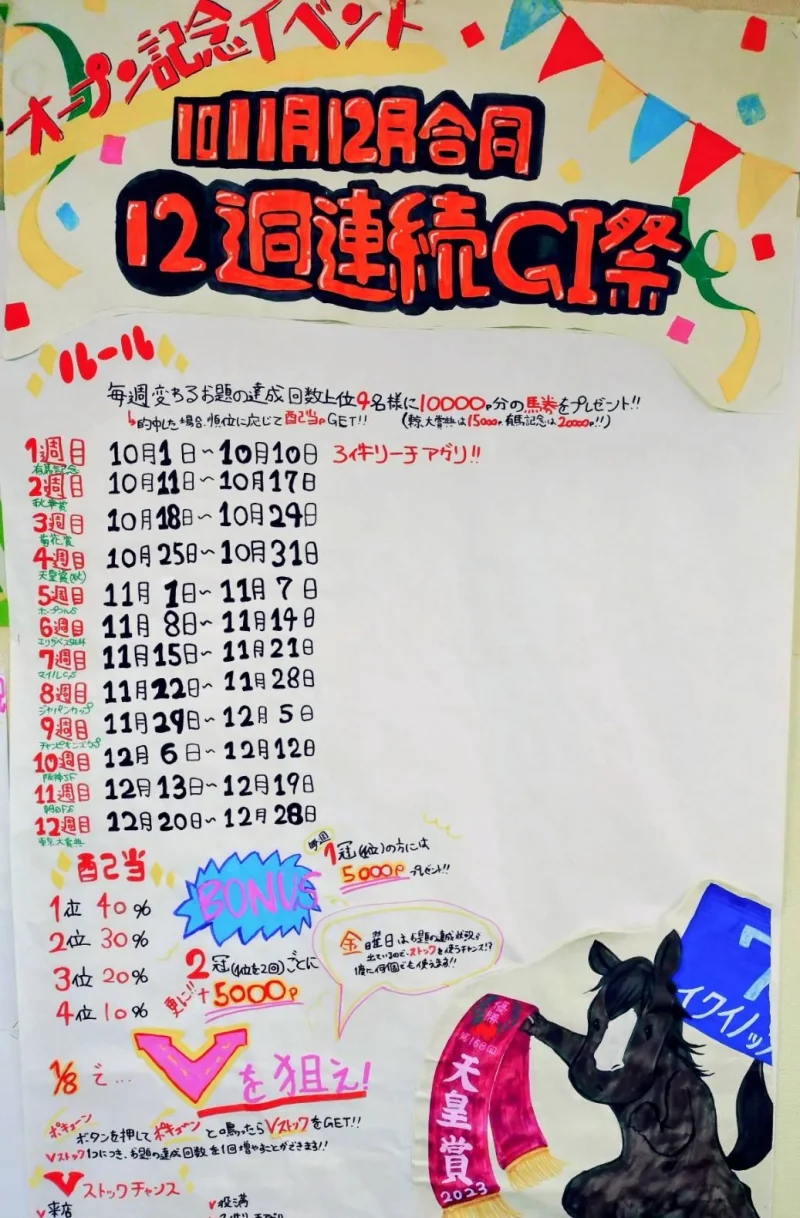 オープン記念イベント
10 11月12月合同
12週連続GI祭
ルール
毎週変わるお題の達成回数上位4名様に10000P分の馬券をプレゼント!!
↳的中した場合、順位に応じて配当P GET!! (東京大賞典は15000P 有馬記念は20000P!!)
1週目 10月1日~10月10日 3外リーチアグリ!!
有馬記念
2週目 10月11日~10月17日
秋華賞
3週目 10月18日~10月24日
菊花賞
4週目 10月25日~10月31日
天皇賞(秋)
5週目 11月1日~11月7日
6週目 11月8日~11月14日
エリザベス女王杯
7週目 11月15日~11月21日
マイルCS
8週目 11月22日~11月28日
ジャパンカップ
9週目 11月29日~12月5日
チャンピオンズカップ
10週目 12月6日~12月12日
阪神JF
11週目 12月13日~12月19日
朝日FS
12週目 12月20日~12月28日
東京大賞典
配当
1位 40%
2位 30%
3位 20%
4位 10%
BONUS
毎週1冠(1位)の方には
5000P プレゼント!!
2冠(1位を2回)ごとに
更に!!+5000P
金曜日はお題の達成状況が
出ているので、ストックを使うチャンス!?
1度に何個でも使えます!!
1/8で…Vを狙え!
ポキューン
ボタンを押してポキューンと鳴ったらVストックをGET!!
Vストック1つにつき、お題の達成回数を1回増やすことができます!!
Vストックチャンス
V来店
V役満
優勝
第168回
天皇賞
2023
7
イクイノッ